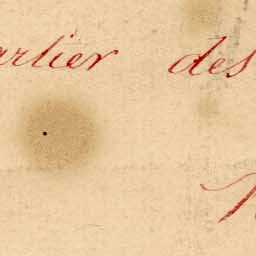 artier des